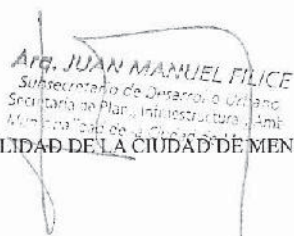 Arq. JUAN MANUEL FILICE
Subsecretario de Desarrollo Urbano
Secretaría de Plan., Infraestructura y Amb.
Municipalidad de la Ciudad de
LIDAD DE LA CIUDAD DE MEN